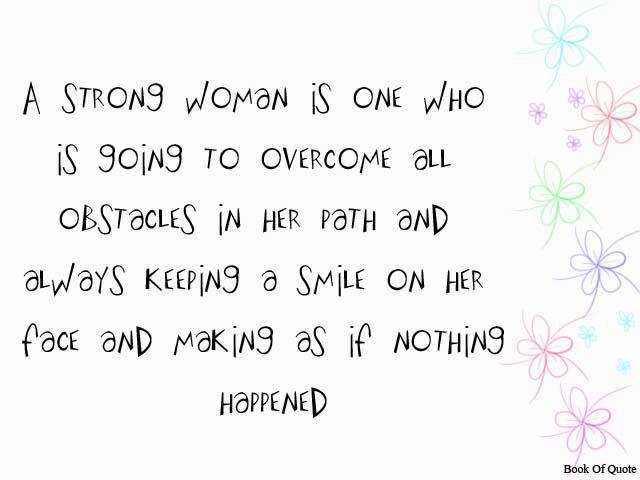 A STRONG WOMAN IS ONE WHO
IS GOING TO OVERCOME ALL
OBSTACLES IN HER PATH AND
ALWAYS KEEPING A SMILE ON HER
FACE AND MAKING AS IF NOTHING
HAPPENED
Book Of Quote